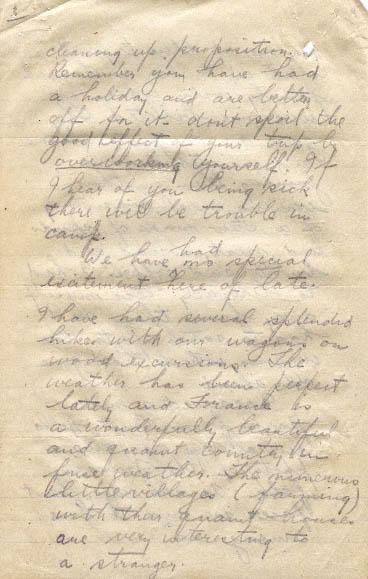 cleaning up proposition.
Remember you have had
a holiday and are better
off for it. don't spoil the
good effect of your trip by
overworking yourself. If
I hear of you being sick
there will be trouble in
camp.
We have had no special
exitement here of late.
I have had several splendid
hikes with our wagons on
wood excursions. The
weather has been perfect
lately and France is
a wonderfully beautiful
and quaint country in
fine weather. The numerous
little villages (farming)
with their quaint houses
are very interesting to
a stranger.